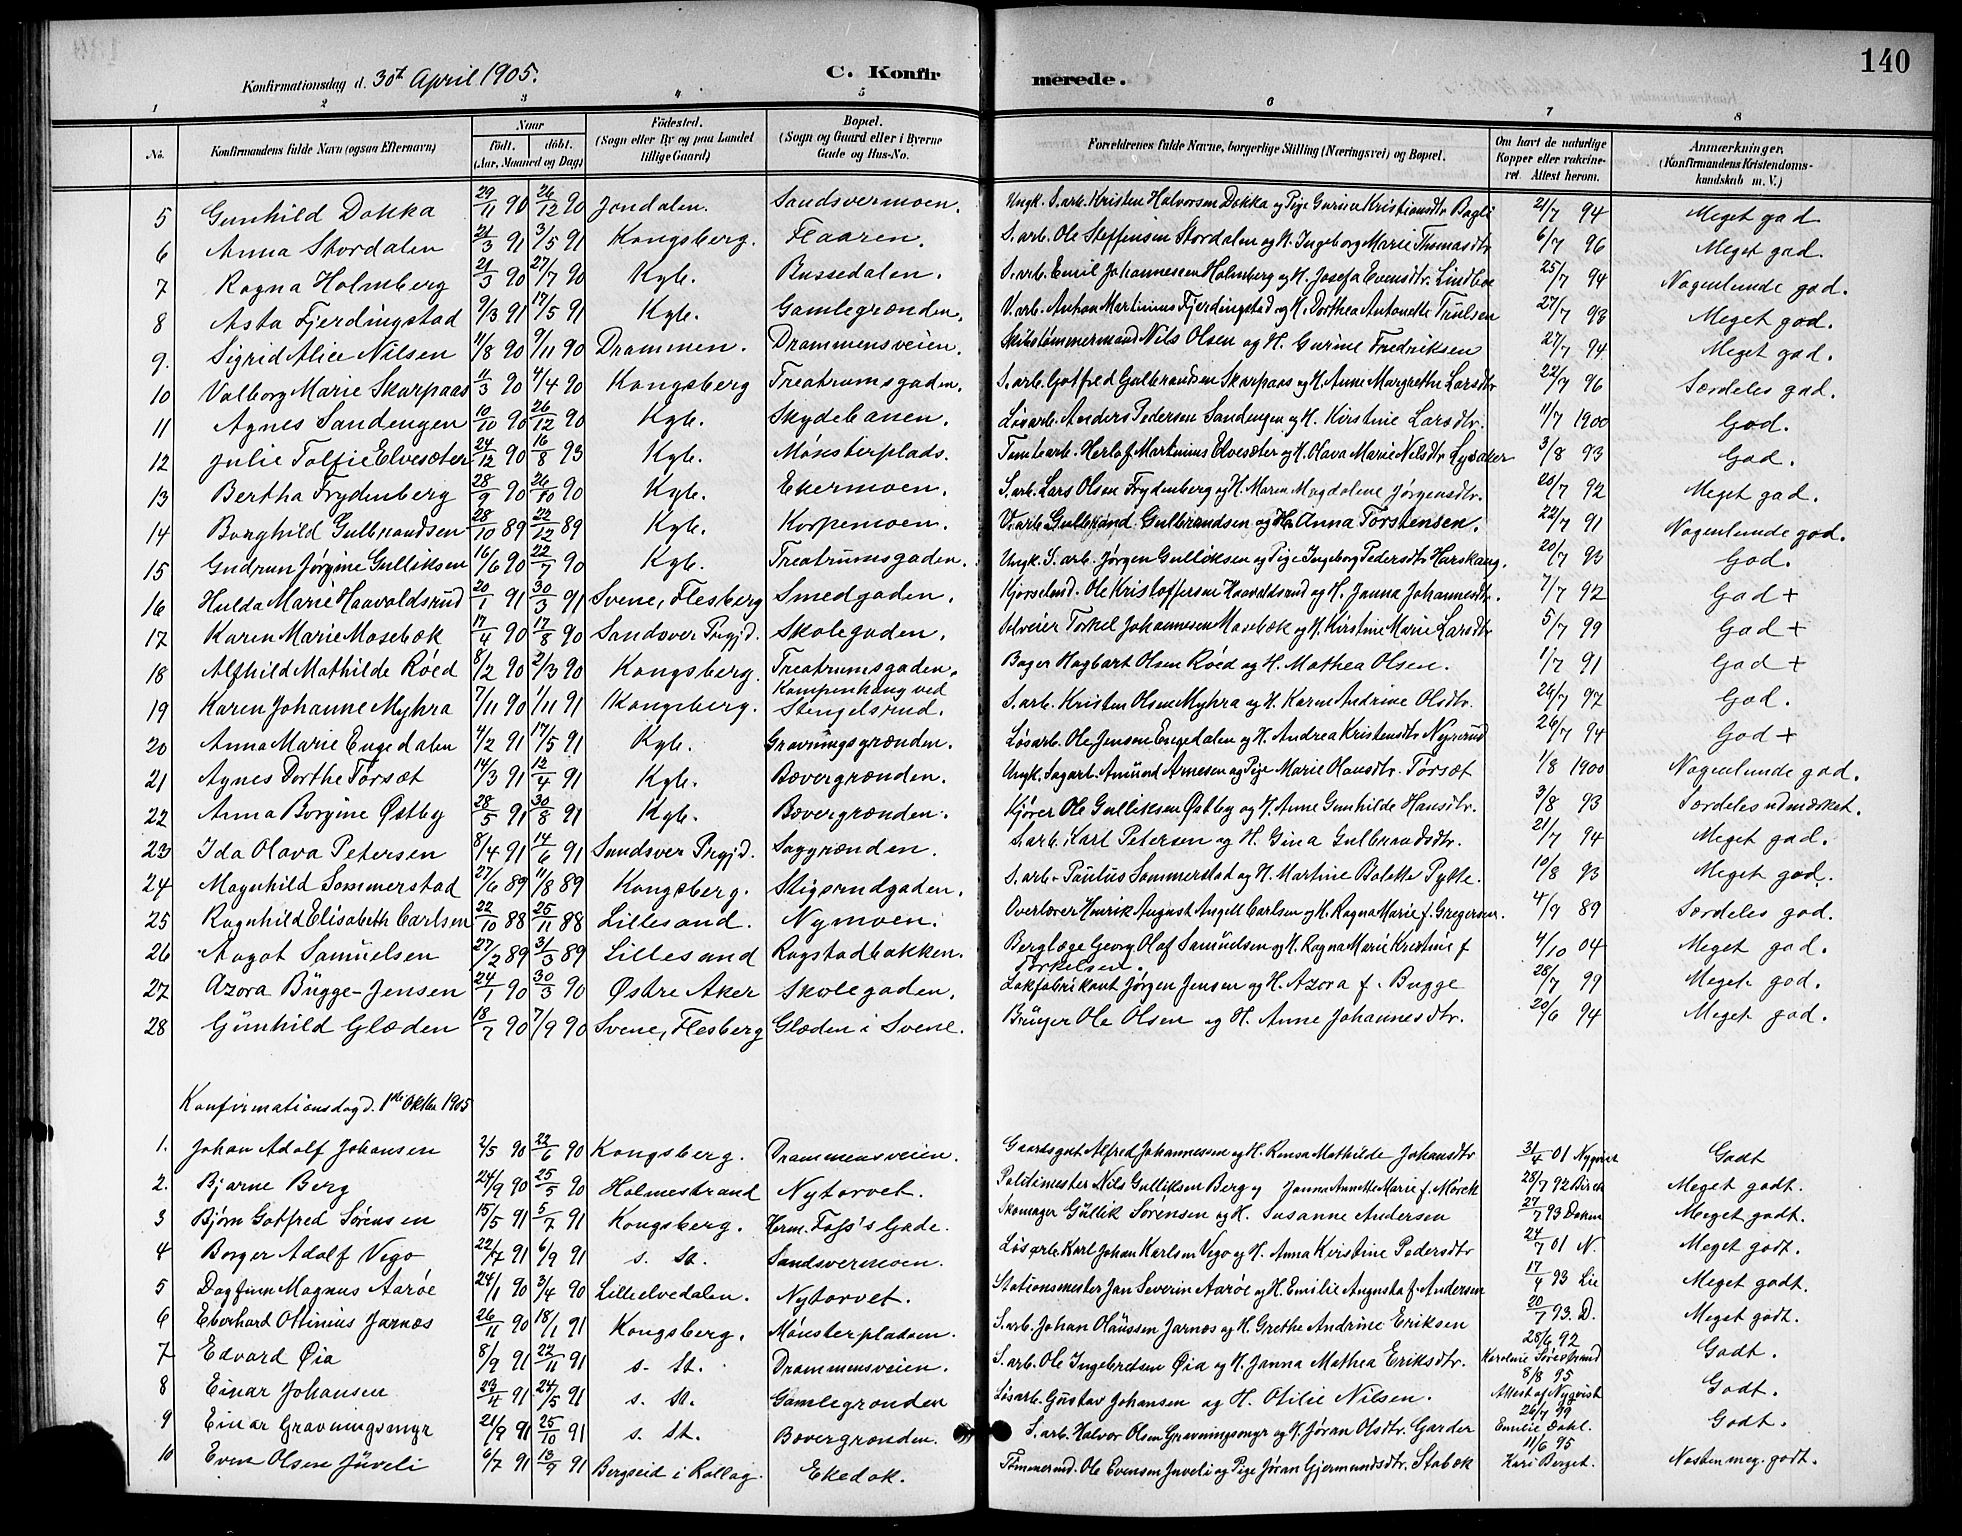 140
Konfirmationsdag d. 30te April 1905.
C. Konfirmerede.
1 2 3 4 5 6 7 8
No.
Konfirmandens fulde Navn (ogsaa Efternavn)
Naar
födt. döbt.
(Aar, Maaned og Dag)
Födested.
(Sogn eller By og paa Landet
tillige Gaard)
Bopæl.
(Sogn og Gaard eller i Byerne
Gade og Hus-No.
Forældrenes fulde Navne, borgerlige Stilling (Næringsvei) og Bopæl.
Om havt de naturlige
Kopper eller vakcine-
ret. Attest herom.
Anmærkninger.
(Konfirmandens Kristendoms-
kundskab m. V.)
5 Gunhild Dokka 29/11 90 26/12 90 Jondalen. Sandsvermoen. Ungk. S.arb. Kristen Halvorsen Dokka og Pige Gurine Kristiansdtr Bagli 21/7 94 Meget god
6 Anna Stordalen 21/3 91 3/5 91 Kongsberg. Flaaren. S.arb. Ole Steffensen Stordalen og H. Ingeborg Marie Thomasdtr. 6/7 96 Meget god.
7 Ragna Holmberg 21/3 90 27/7 90 Kgb. Bussedalen. S.arb. Emil Johannesen Holmberg og H. Josefa Evensdtr. 25/7 94 Nogenlunde god.
8 Asta Fjerdingstad 9/3 91 17/5 91 Kgb. Gamlegrænden. V.arb. Anton Martinius Fjerdingstad og H. Dorthea Antonette Trulsen 27/7 98 Meget god.
9. Sigrid Alice Nilsen 11/8 90 9/11 90 Drammen. Drammensveien. Skibstømmermand Nils Olsen og H. Gurine Fredriksen 27/7 94 Meget god.
10 Valborg Marie Skarpaas 11/3 90 4/4 90 Kongsberg Treatrumsgaden. S.arb. Gotfred Gulbrandsen Skarpaas og H. Anne Margrethe Larsdtr 22/7 96 Særdeles god.
11 Agnes Sandengen 10/10 90 26/12 90 Kgb. Skydebanen. Løsarb. Anders Pedersen Sandengen og H. Kirstine Larsdtr. 11/7 1900 God.
12 Julie Tolfie Elvesæter 24/12 90 16/8 93 Kgb. Mønsterplads. Tomtearb. Herlof Martinius Elvesæter og H. Olava Marie Nilsdtr. Lysaker 3/8 93 God.
13 Bertha Frydenberg 28/9 90 26/10 90 Kgb. Ekermoen. S.arb. Lars Olsen Frydenberg og H. Maren Magdalene Jørgensdtr. 20/7 92 Meget god.
14 Borghild Gulbrandsen 28/10 89 22/12 89 Kgb. Korpemoen. V.arb. Gulbrand Gulbrandsen og H. Anna Torstensen. 22/7 91 Nogenlunde god.
15 Gudrun Jørgine Gulliksen 16/6 90 22/7 90 Kgb. Treatrumsgaden. Ungk. S.arb. Jørgen Gulliksen og Pige Ingeborg Pedersdtr 20/7 93 God.
16 Hulda Marie Haavaldsrud 20/1 91 30/3 91 Svene, Flesberg Smedgaden. Ole Kristoffersen Haavaldsrud og H. Janna Johannesdtr. 7/7 92 God +
17 Karen Marie Mosebæk 17/4 90 17/8 90 Sandsver Prgjd. Skolegaden. Selveier Torkel Johannesen Mosebæk og H. Kirstine Marie Larsdtr 5/7 99 God +
18 Alfhild Mathilde Röed 8/2 90 2/3 90 Kongsberg. Treatrumsgaden. Bager Hagbart Olsen Röed og H. Mathea Olsen. 1/7 91 God +
19 Karen Johanne Myhra 7/11 90 1/11 91 Kongsberg. Kampenhaug ved Stengelsrud. S.arb. Kristen Olsen Myhra og H. Karen Andrine Olsdtr. 26/7 97 God.
20 Anna Marie Engedalen 4/2 91 17/5 91 Kgb. Gravningsgrænden. Løsarb. Ole Jensen Engedalen og H. Andrea Kristensdtr Nyrerud 26/7 94 God +
21 Agnes Dorthe Torsæt 14/3 91 12/4 91 Kgb. Bævergrænden. Ungk. Sagarb. Amund Arnesen og Pige Marie Olausdtr. Torsæt 1/8 1900 Nogenlunde god.
22 Anna Borgine Østby 28/5 91 30/8 91 Kgb. Bævergrænden. Kjører Ole Gulliksen Østby og H. Anne Gunhilde Hansdtr. 3/8 93 Særdeles udmærket.
23 Ida Olava Petersen 8/4 91 14/6 91 Sandsver Prgjd. Saggrænden. S.arb. Karl Petersen og H. Gina Gulbrandsdtr. 21/7 94 Meget god.
24 Magnhild Sommerstad 27/6 89 11/8 89 Kongsberg. Stigersundgaden. S.arb. Paulus Sommerstad og H. Martine Bolette Pytte. 10/8 93 Meget god.
25 Ragnhild Elisabeth Carlsen 22/10 88 25/11 88 Lillesand. Nymoen. Overlærer Henrik August Angell Carlsen og H. Ragna Marie f. Gregersen. 4/9 89 Særdeles god.
26 Aagot Samuelsen 27/2 89 31/3 89 Lillesand Rogstadbakken. Berglæge Georg Olaf Samuelsen og H. Ragna Marie Kristine f Torkelsen. 4/10 04 Meget god.
27 Azora Bügge-Jensen 24/1 90 30/3 90 Østre Aker Skolegaden. Lakfabrikant Jørgen Jensen og H. Azora f. Bugge 28/7 99 Meget god.
28 Gunhild Glæden 18/7 90 7/9 90 Svene, Flesberg Glæden i Svene. Bruger Ole Olsen og H. Anne Johannesdtr. 20/6 94 Meget god.
Konfirmationsdag d. 1ste Oktbr 1905
1. Johan Adolf Johansen 2/5 90 22/6 90 Kongsberg. Drammensveien. Gaardsgut Alfred Johannessen og H. Rensa Mathilde Johansdtr 31/4 01 Nyqvist Godt
2. Bjarne Berg 24/9 90 25/5 90 Holmestrand Nytorvet. Politimester Nils Gulliksen Berg og Janna Annette Marie f. Mörck 28/7 92 Birch Meget godt.
3 Bjørn Gotfred Sörensen 15/5 91 5/7 91 Kongsberg. Herm. Foss's Gade. Skomager Gullik Sörensen og H. Susanne Andersen 27/7 93 Meget godt.
4 Borger Adolf Vego 22/7 91 6/9 91 s. St. Sandsvermoen. Løsarb. Karl Johan Karlsen Vego og H. Anna Kirstine Pedersdtr 24/7 01 N. Meget godt.
5 Dagfinn Magnus Aaröe 24/1 90 3/4 90 Lilleelvedalen. Nytorvet. Stationsmester Jan Severin Aaröe og H. Emilie Augusta f. Andersen 17/4 93 Lie Meget godt.
6 Eberhard Ottinius Jarnæs 26/11 90 18/1 91 Kongsberg. Mønsterpladsen. S.arb. Johan Olaussen Jarnæs og H. Grethe Andrine Eriksen 20/7 93. D. Meget godt.
7 Edvard Øia 8/9 91 22/11 91 s. St. Drammensveien. S.arb. Ole Ingebretsen Øia og H. Janna Mathea Eriksdtr. 28/6 92 Karoline Godt.
8 Einar Johansen 23/4 91 24/5 91 s. St. Gamlegrænden Løsarb. Gustav Johansen og H. Otilie Nilsen. 8/8 95 Attest af Nyqvist Godt.
9 Einar Gravningsmyr 21/9 91 25/10 91 s. St. Bævergrænden. S.arb. Halvor Olsen Gravningsmyr og H. Jøran Olsdtr. Garder 26/7 99 Emilie Dahl. Godt.
10 Even Olsen Juveli 6/7 91 13/9 91 Bergseid i Rollag. Ekedok. Tömmermd. Ole Evensen Juveli og Pige Jøran Gjermundsdtr. Stabæk 11/6 95 Kari Berget. Næsten meg. godt.